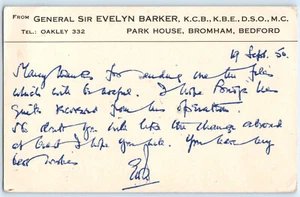 FROM GENERAL SIR EVELYN BARKER, K.C.B., K.B.E., D.S.O., M.C.
TEL: OAKLEY 332 PARK HOUSE, BROMHAM, BEDFORD
19 Sept. 50.
Many thanks for sending me the
which will be useful. I hope has
quite recovered from his operation.
No doubt you will like the change abroad
at least I hope you . You have my
best wishes